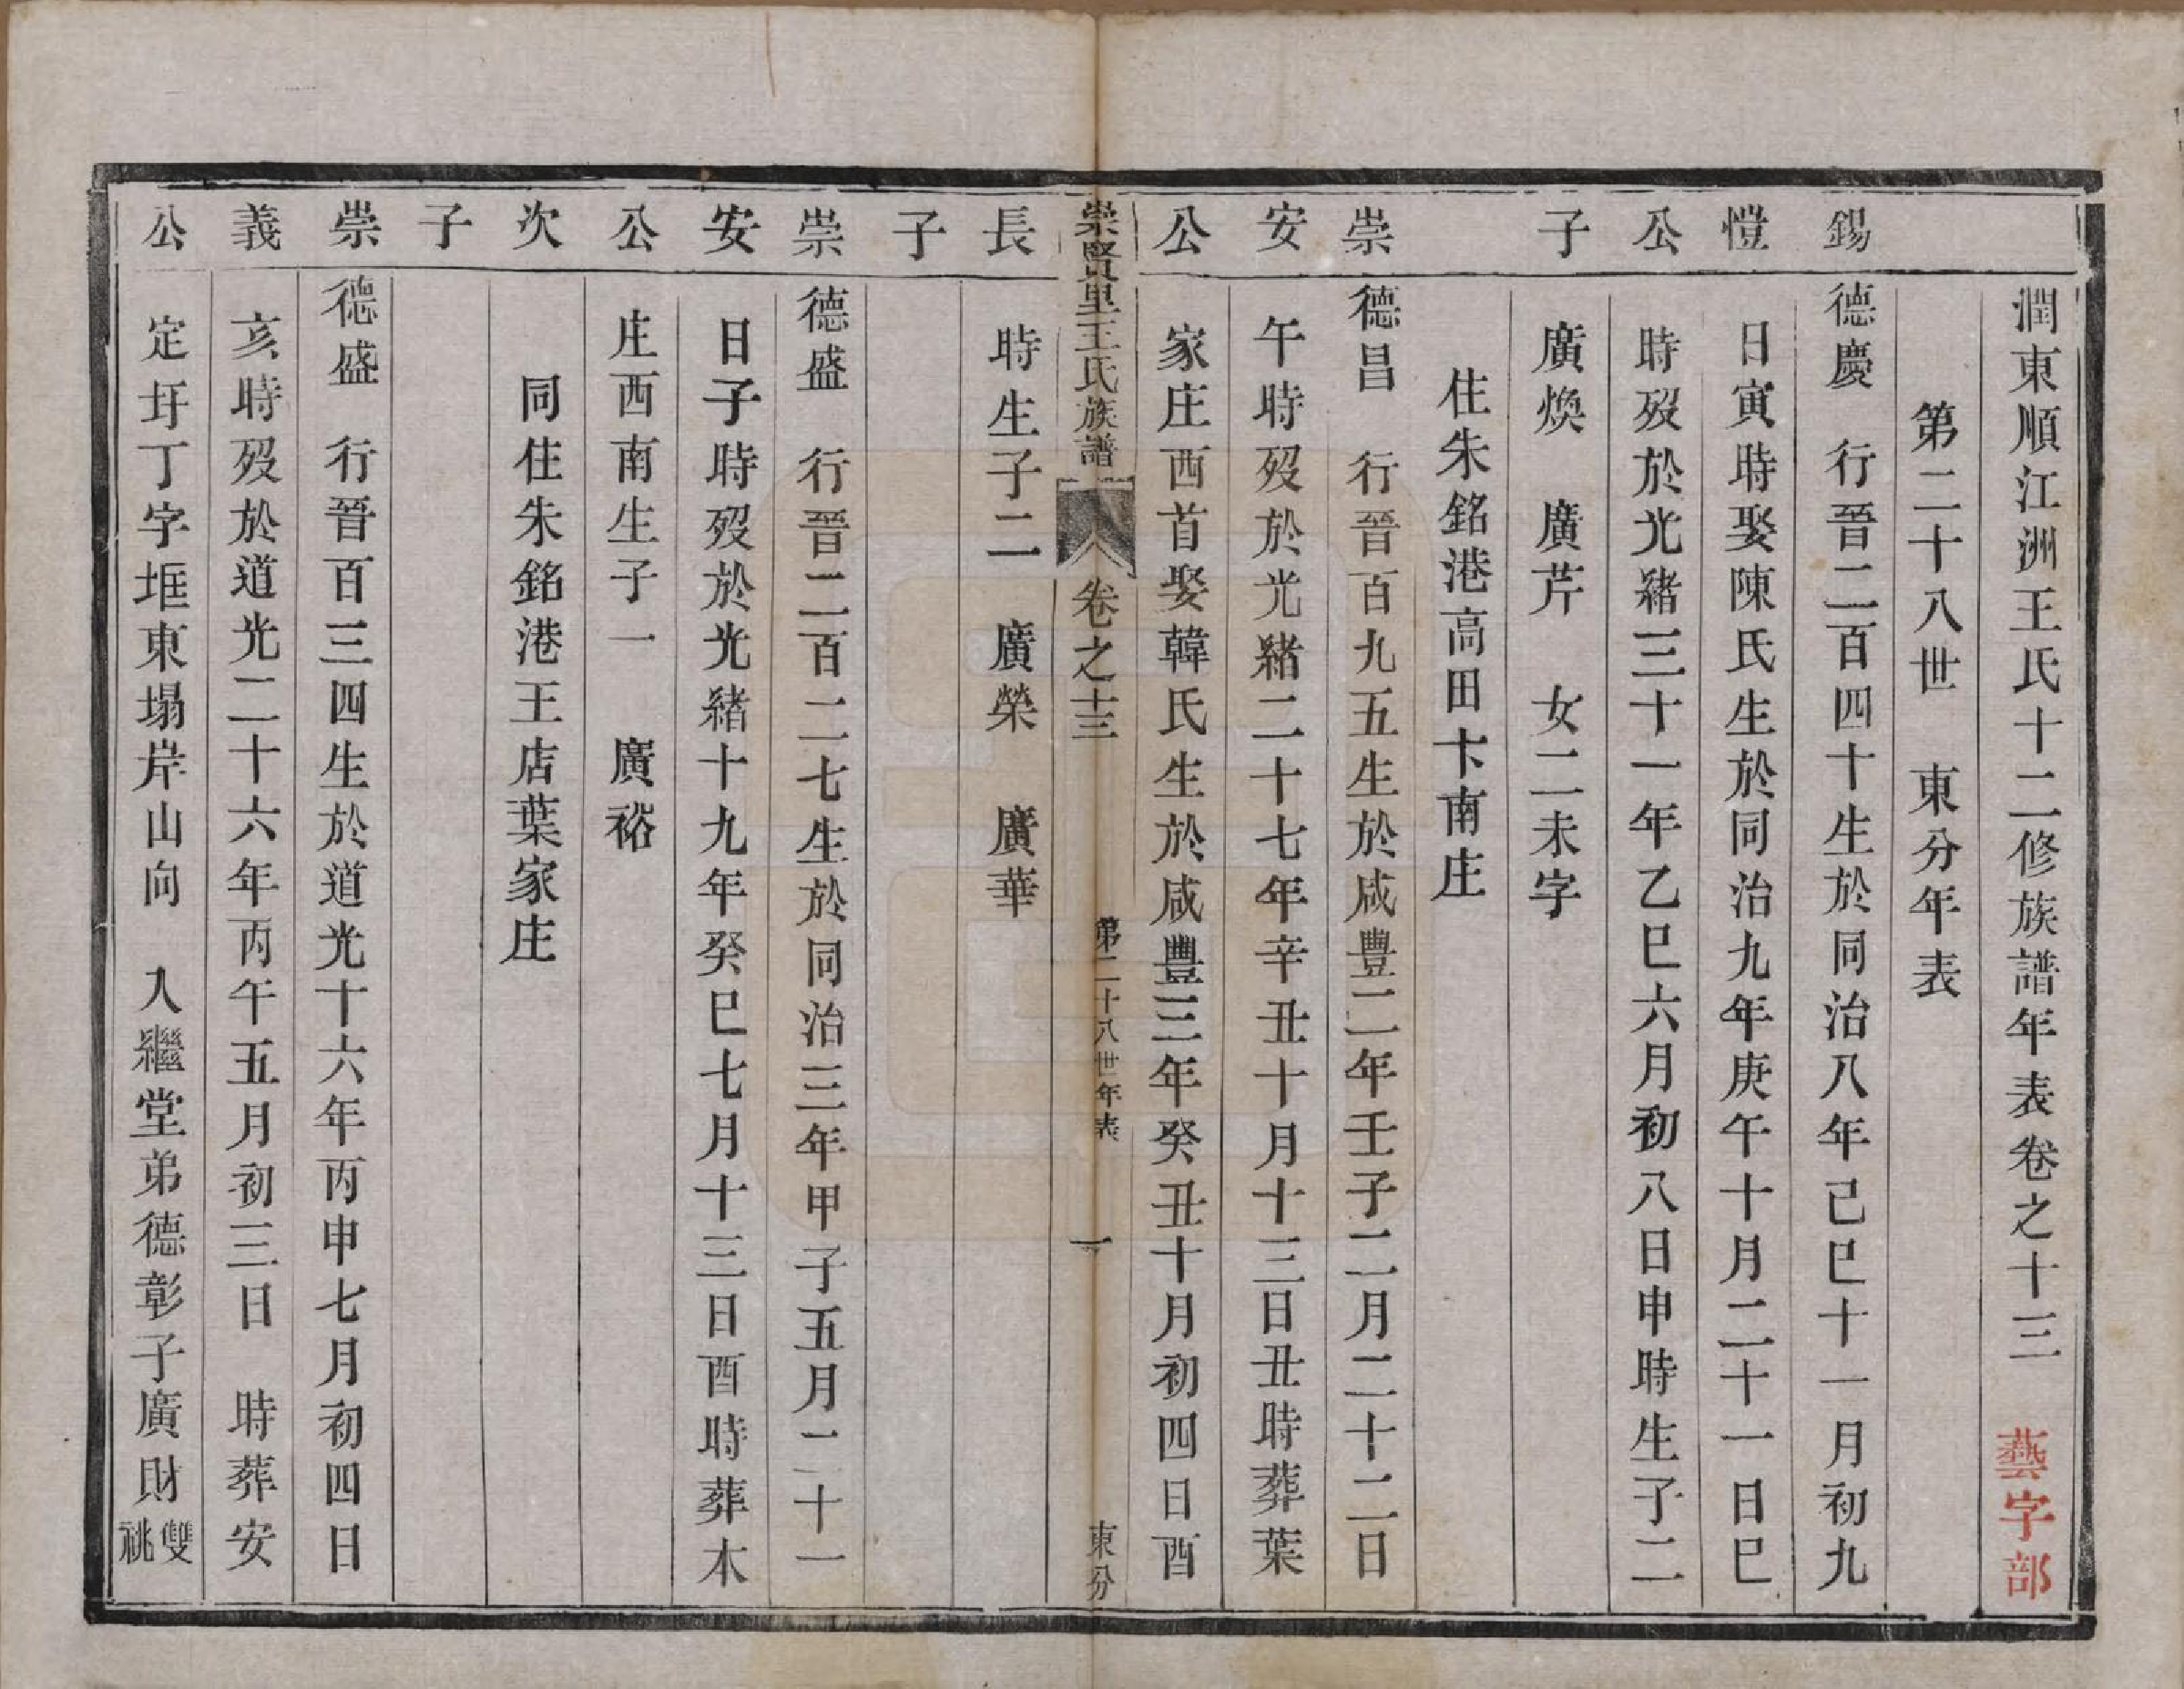 潤東順江洲王氏十二修族譜年表卷之十三 藝字部
第二十八世 東分年表
錫 德慶 行晉二百四十生於同治八年己巳十一月初九
愷 日寅時娶陳氏生於同治九年庚午十月二十一日巳
公 時歿於光緒三十一年乙巳六月初八日申時生子二
子 廣煥 廣芹 女二未字
住朱銘港高田卞南庄
崇 德昌 行晉百九五生於咸豐二年壬子二月二十二日
安 午時歿於光緒二十七年辛丑十月十三日丑時葬葉
公 家庄西首娶韓氏生於咸豐三年癸丑十月初四日酉
崇賢里王氏族譜 卷之十三 第二十八世年表 一 東分
長 時生子二 廣榮 廣華
子
崇 德盛 行晉二百二七生於同治三年甲子五月二十一
安 日子時歿於光緒十九年癸巳七月十三日酉時葬木
公 庄西南生子一 廣裕
次 同住朱銘港王店葉家庄
子
崇 德盛 行晉百三四生於道光十六年丙申七月初四日
義 亥時歿於道光二十六年丙午五月初三日 時葬安
公 定圩丁字埏東塌岸山向 入繼堂弟德彰子廣財雙祧